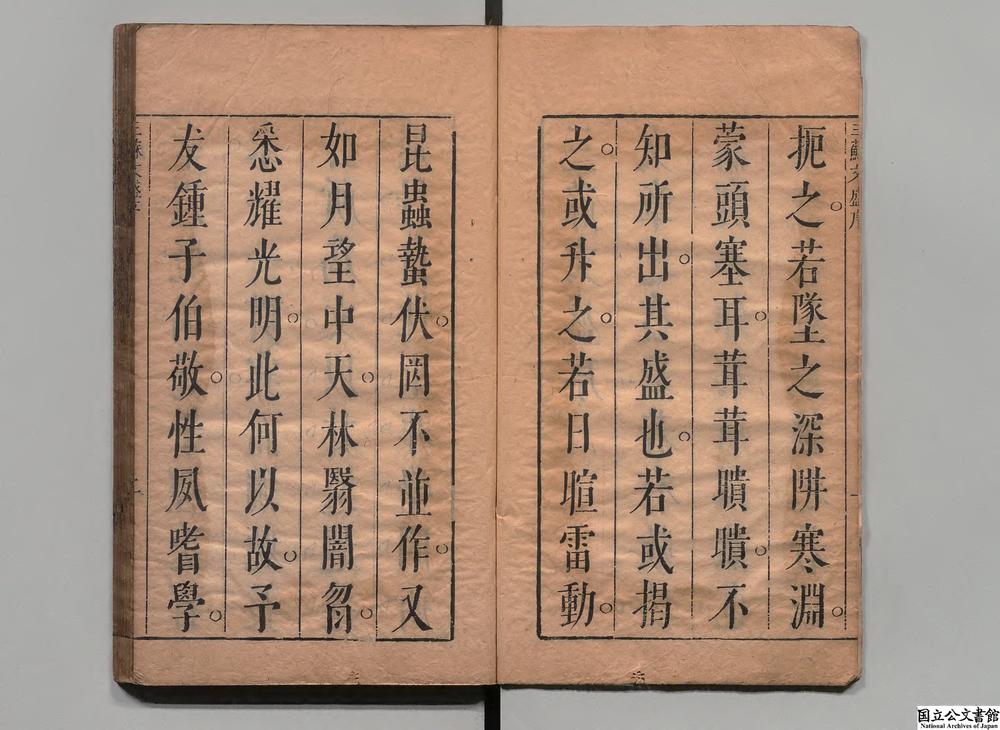 三蘇文盛序
扼之若墜之深阱寒淵
蒙頭塞耳茸茸聵聵不
知所出其盛也若或揭
之或升之若日暄雷動
昆蟲蟄伏罔不並作又
如月望中天林翳闇曶
悉耀光明此何以故予
友鍾子伯敬性夙嗜學
国立公文書館
National Archives of Japan